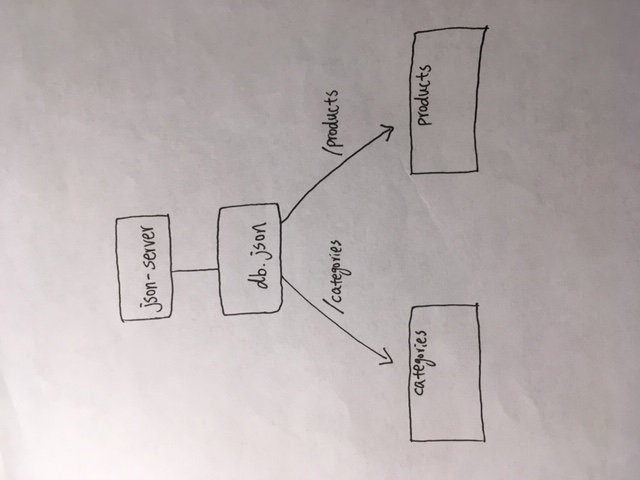 json-server
db.json
/categories
/products
categories
products